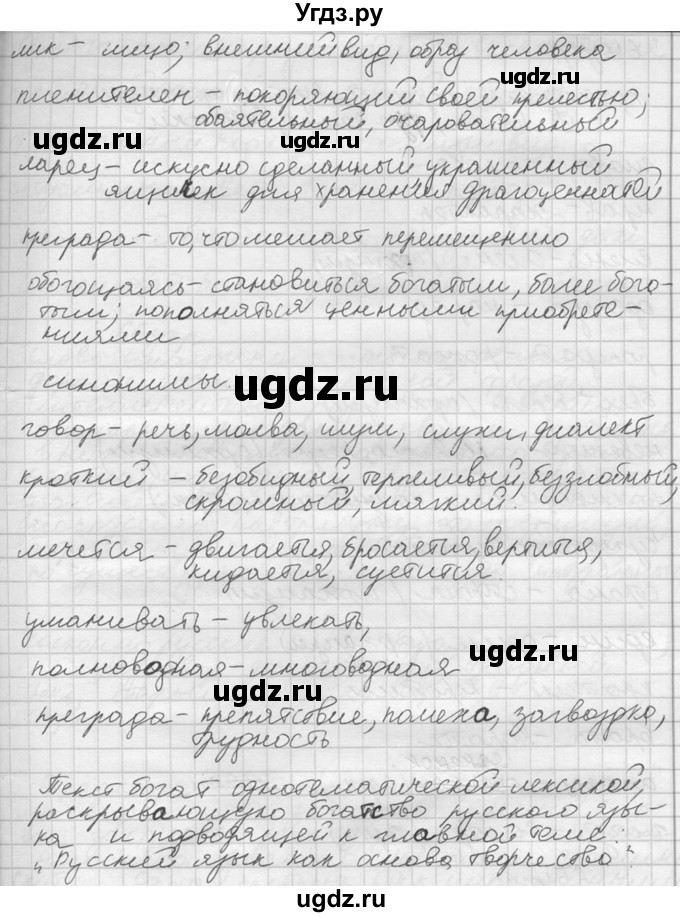 Угдз.ру
лик – лицо; внешний вид, образ человека
ugdz.ru
пленителен – покоряющий своей прелестью;
обаятельный, очаровательный
ugdz.ru
ugdz.ru
ларец – искусно сделанный украшенный
ящичек для хранения драгоценнатей
преграда – то, что мешает перемещению
обогощаясь – становиться богатым, более бога-
тым; пополняться ценными приобрете-
ниями
синонимы.
ugdz.ru
говор – речь, молва, шум, слухи, диалект
кроткий – безобидный, терпеливый, беззлобный,
скромный, мягкий.
мечется – двигается, бросается, вертится,
кидается, суетится.
уманивать – увлекать,
ugdz.ru
полноводная – многоводная
ugdz.ru
преграда – препятствие, помеха, загвоздка,
трудность
Текст богат однотематической лексикой,
раскрывающую богатство русского язы-
ка и подводящей к главной теме:
„Русский язык как основа творчества".
ugdz.ru